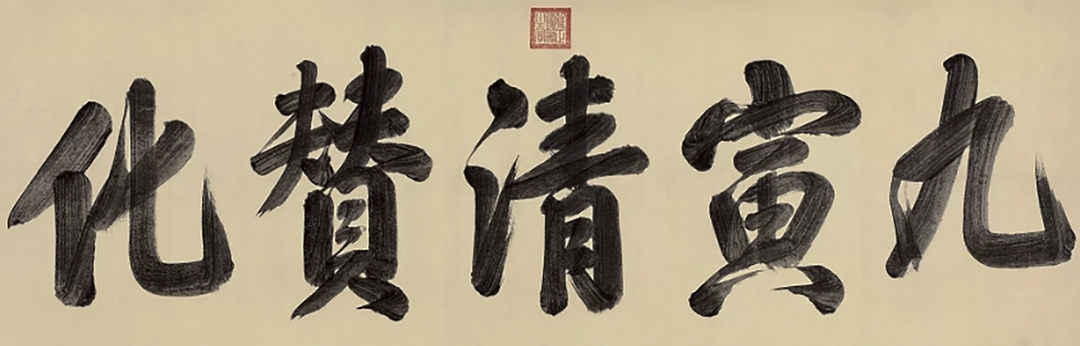 九寅清賛化